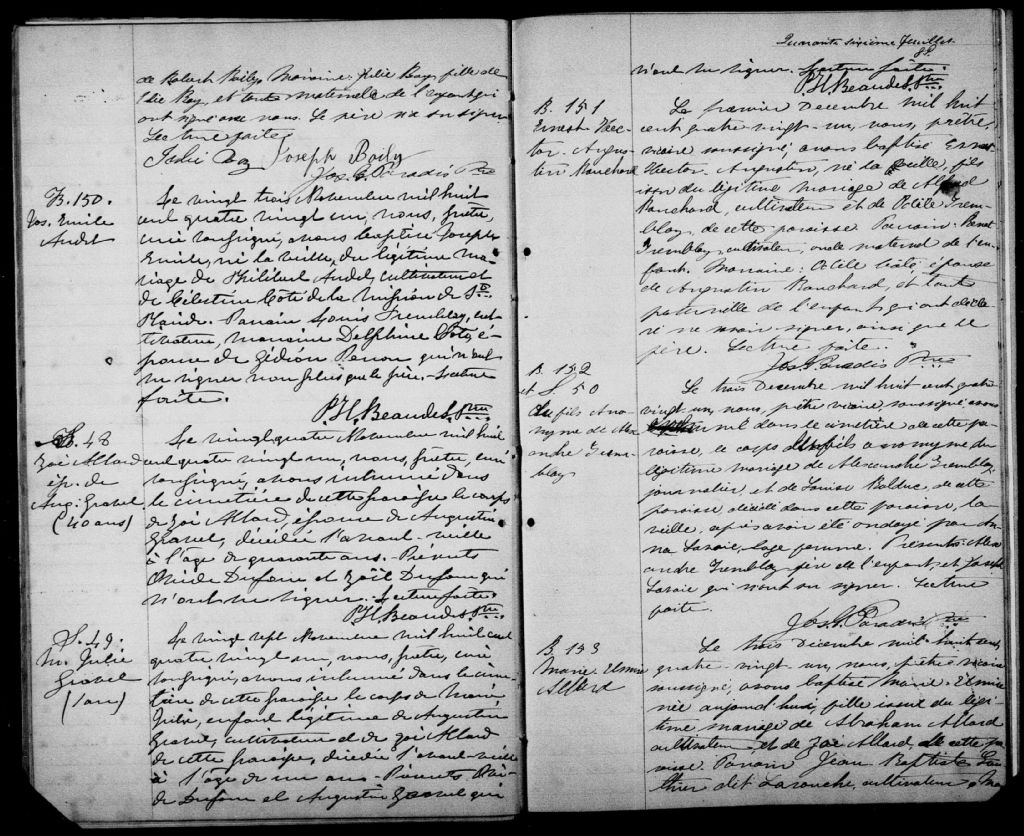 de Robert Boily. Marraine: Julie Roy, fille de
Elie Roy, et tante maternelle de l'enfant qui
ont signé avec nous. Le père n'a su signer
Lecture faite.
Julie Roy Joseph Boily
Jos. Paradis Ptre
B. 150.
Jos. Emile
Audet
Le vingt trois Novembre mil huit
cent quatre vingt un, nous, prêtre,
curé soussigné, avons baptisé Joseph
Emile, né la veille, du légitime ma-
riage de Audet, cultivateur et
de Célestine Côté de la mission de St
Placide. Parrain Louis Tremblay, cul-
tivateur, marraine Delphine Côté, é-
pouse de Gédéon Perron qui n'ont
su signer non plus que le père. Lecture
faite.
P. H. Beaudet, Ptre
S. 48
Zoé Allard
ép. de
Aug. Gravel
(40 ans)
Le vingt quatre Novembre mil huit
cent quatre vingt un, nous, prêtre, curé
soussigné, avons inhumé dans
le cimetière de cette paroisse le corps
de Zoé Allard, épouse de Augustin
Gravel, décédée l'avant-veille
à l'âge de quarante ans. Présents
Dufour et Dufour qui
n'ont su signer. Lecture faite.
P. H. Beaudet, Ptre
S. 49.
M. Julie
Gravel
(1 an)
Le vingt sept Novembre mil huit cent
quatre vingt un, nous, prêtre, curé
soussigné, avons inhumé dans le cime-
tière de cette paroisse le corps de Marie
Julie, enfant légitime de Augustin
Gravel, cultivateur et de Zoé Allard
de cette paroisse, décédée l'avant-veille
à l'âge de un an. Présents
de Dufour et Augustin Gravel qui
Quarante sixième feuillet
n'ont su signer. Lecture faite.
P. H. Beaudet, Ptre
B. 151
Ernest Hec-
tor Augus-
tin Bouchard
Le premier Decembre mil huit
cent quatre vingt-un, nous, prêtre,
vicaire soussigné, avons baptisé Ernest
Hector Augustin, né la veille, fils
issu du légitime mariage de Allard
Bouchard, cultivateur et de Otile Trem-
blay, de cette paroisse. Parrain:
Tremblay, cultivateur, oncle maternel de l'en-
fant. Marraine: Otile épouse
de Augustin Bouchard, et tante
paternelle de l'enfant qui ont décla-
ré ne savoir signer, ainsi que le
père. Lecture faite.
Jos. Paradis Ptre
B. 152
et S. 50
Du fils Ano-
nyme de Alex-
andre Trem-
blay
Le trois Decembre mil huit cent quatre
vingt un, nous, prêtre vicaire, soussigné, avons
inhumé dans le cimetière de cette pa-
roisse, le corps d'un fils anonyme du
légitime mariage de Alexandre Tremblay,
journalier, et de Louise Bolduc, de cette
paroisse décédé dans cette paroisse, la
veille, après avoir été ondoyé par An-
na Lavoie, sage femme. Présents: Alex-
andre Tremblay père de l'enfant, et Joseph
Lavoie qui n'ont su signer. Lecture
faite.
Jos. Paradis Ptre
B. 153
Marie Elmire
Allard
Le trois Décembre mil-huit-cent,
quatre vingt-un, nous, prêtre vicaire
soussigné, avons baptisé Marie-Elmire
née aujourd'hui, fille issue du légi-
time mariage de Abraham Allard
cultivateur et de Zoé Allard, de cette pa-
roisse. Parrain Jean Baptiste Gau-
thier dit Larouche, cultivateur, Ma